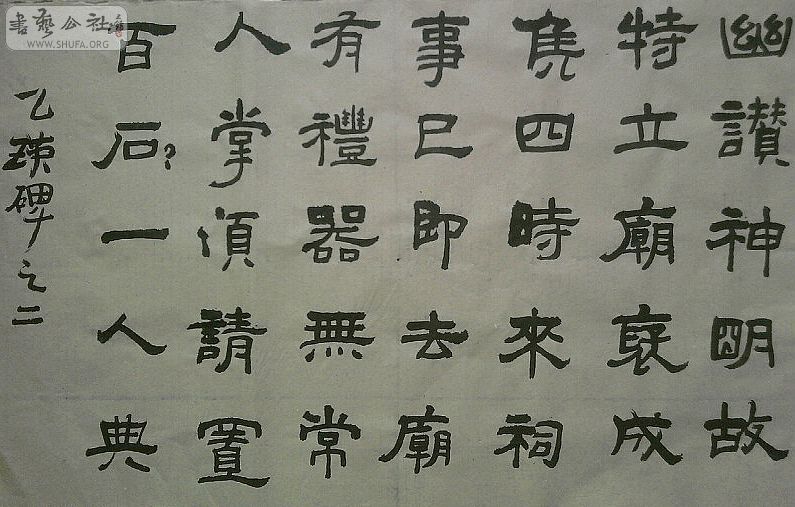 幽讚神明故
特立廟褒成
侯四時來祠
事已即去廟
有禮器無常
人掌領請置
百石?一人典
乙瑛碑之二
書藝公社
WWW.SHUFA.ORG